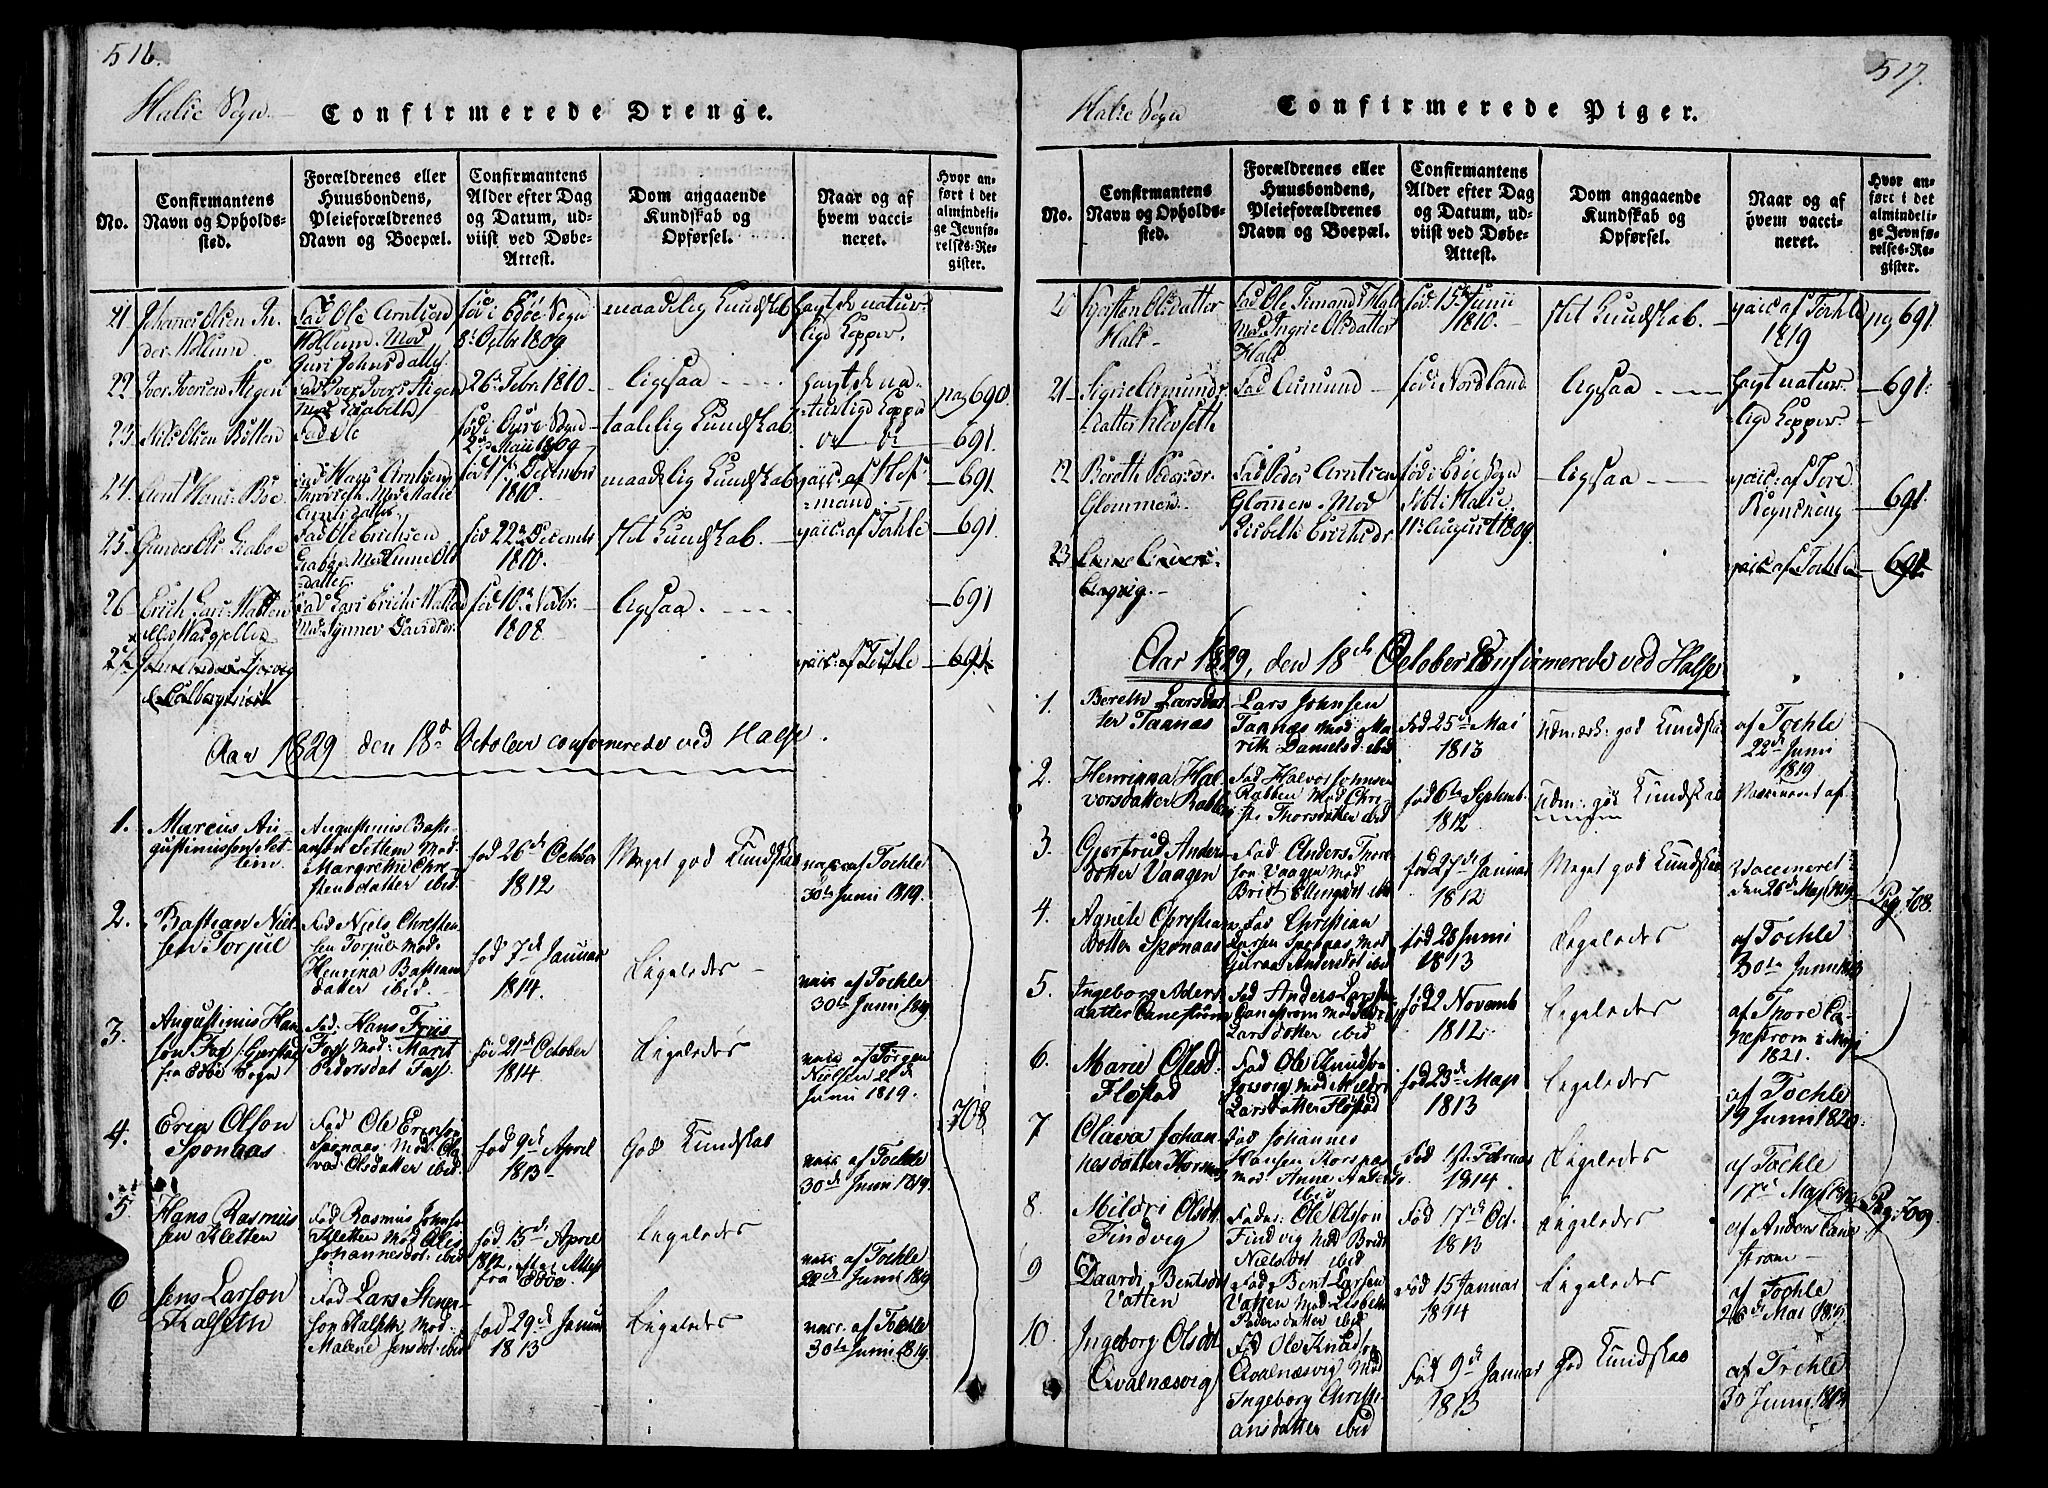 516.
Halse Sogn
Confirmerede Drenge.
No.
Confirmantens
Navn og Opholds-
sted.
Forældrenes eller
Huusbondens,
Pleieforældrenes
Navn og Boepæl.
Confirmantens
Alder efter Dag
og Datum, ud-
viist ved Døbe-
Attest.
Dom angaaende
Kundskab og
Opførsel.
Naar og af
hvem vacci-
neret.
Hvor an-
ført i det
almindeli-
ge Jevnfø-
relses-Re-
gister.
21.
Fad Ole Arntsen
Mod
Guri Johnsdatter
fød i Edøe Sogn
8de Octbr 1809
maadelig Kundskab
havt de natur-
lige Kopper.
22
Iver Iversen Stigen
Fad Iver Ivers Stigen
Mod Lisabeth
26de Febr. 1810
ligesaa
havt de na-
turlig Kopper
pag 690
23.
Nils Olsen Botten
Fad Ole
fød i Øure Sogn
27 Mai 1809
taalelig Kundskab
691
24.
Arnt Hans. Boe
Fad Hans Arntsen
Mod Malie
Arntsdatter
fød 17de December
1810
maadelig Kundskab
vacc: af Hof-
mand
691
25.
Fad Ole Erichsen
Mod Anne Ols
datter
fød 22de Decembr
1810
slet Kundskab
vacc: af Tochle
691
26
Erich Lars. Vatten
Fad Lars Erichs Vatten
Mod Synnev Davidsdr.
fød 10de Novbr.
1808
ligesaa
691
27
vacc: af Tochle
691.
Aar 1829 den 18de October confirmerede ved Halse.
1.
Marcus Au-
gustinussen Set-
tem
Augustinus Bast-
iansen Settem Mod.
Margrethe Chri-
stensdatter ibid
fød 26de October
1812
Meget god Kundskab
vacc. af Tochle
30te Junii 1819.
2.
Bastian Niel-
sen Torjul
Fad Niels Christen-
sen Torjul Mod.
Henrina Bastian
datter ibid
fød 7de Januar
1814.
Ligeledes
vacc af Tochle
30te Junii 1819
3.
Augustinus Han-
sen Fos / Gjerstad
fra Edøe Sogn
Fad: Hans Friis
Foss Mod: Marit
Pedersdat Foss.
fød 21de October
1814.
Ligeledes
vacc af Jørgen
Nielsen 22de
Junii 1819.
4.
Erin Olson
Sponaas
Fad Ole Erinson
Sponaas Mod Ol-
ava Olsdatter ibid
fød 9de April
1813
God Kundskab
vacc. af Tochle
30te Junii 1819.
708
5
Hans Rasmus
sen Kletten
Fad Rasmus Johnsen
Kletten Mod Oles
Johannesdot. ibid
fød 15de April
1812, ... Attest
fra Edøe.
Ligeledes
vacc. af Tochle
22de Junii 1819
6
Jens Larson
Kalsem
Fad Lars Stener-
son Kalsem Mod.
Malene Jensdot. ibid
fød 29de Januar
1813
Ligeledes
vacc. af Tochle
30te Junii 1819.
517.
Halse Sogn
Confirmerede Piger.
No.
Confirmantens
Navn og Opholds-
sted.
Forældrenes eller
Huusbondens,
Pleieforældrenes
Navn og Boepæl.
Confirmantens
Alder efter Dag
og Datum, ud-
viist ved Døbe-
Attest.
Dom angaaende
Kundskab og
Opførsel.
Naar og af
hvem vacci-
neret.
Hvor an-
ført i det
almindeli-
ge Jevnfø-
relses-Re-
gister.
Kjersten Olsdatter
Hals
Fad Ole Simonds Hals
Mod Ingrie Olsdatter
Hals
fød 15de Junii
1810.
slet Kundskab.
vacc. af Tochle
1819
pag 691
21
Sigrie Amunds-
datter Klevsette
Fad Amund
fød i Nordland
ligesaa
havt natur-
lige Kopper
691.
22
Bereth Pedersdr.
Glommen
Fad Peder Arntsen
Glommen Mod
Lisbeth Erichsdr
fød i Edøe Sogn
11te August 1809.
ligesaa
vacc: af Tore
691
23
vacc af Tochle
691
Aar 1829, den 18de October Confirmerede ved Halse
1.
Bereth Larsdat
ter Taanæs
Lars Johnsen
Taanæs Mod Ma
rith Danielsd ibid
Fød 25de Mai
1813
Udmærk: god Kundskab
af Tochle
22de Junii
1819
2.
Henrinna Hal-
vorsdatter Rabben
Fad Halvor Johnsen
Rabben Mod Chri-
ste Thorsdatter ibid
fød 6te Septemb.
1812.
Udm: god Kundskab
Vaccineret af
3.
Gjertrud Anders
dotter Vaagen
Fad Anders Thor-
son Vaagen Mod
Brit Ellingsdt ibid
fød 27de Januar
1812
Meget god Kundskab
Vaccineret
den 26de Maj 1819
Pag. 708.
4.
Agnete Christian
dotter Sponaas
Fad Christian
Larsen Sponaas Mod
Guraa Andersdot ibid
fød 28 Junii
1813
Ligeledes
af Tochle
30te Junii 1819
5.
Ingeborg Anders
datter Canestrøm
Fad Anders Larsen
Canestrøm Mod
Larsdotter ibid
fød 2 Novemb
1812.
Ligeledes
af Thore Ca-
nestrøm i Maji
1821.
6.
Marie Olesd.
Fløstad
Fad Ole Knudson
Mod Mildri
Larsdatter Fløstad
fød 23de Maji
1813
Ligeledes
af Tochle
19 Junii 1820
7
Olava Johan
nesdatter Kornæs
Fad Johannes
Hansen Kornæs
Mod Anne Andersd
ibid
Fød 1st. Februar
1814.
Ligeledes
af Tochle
17de Maji 1819
8.
Mildri Olsdt
Findvig
Fader. Ole Olsson
Findvig Mod Brit
Nielsdot ibid
Fød 17de Oct.
1813
Ligeledes
af Anders Cane
strøm
Pag. 709
9
Daardi Bentsdt
Vatten
Fad Bent Larsen
Vatten Mod Lisbeth
Pedersdatter ibid
Fød 15 Januar
1814
Ligeledes
af Tochle
26de Mai 1819.
10.
Ingeborg Olsdt
Qvalnæsvig
Fad Ole Knudson
Qvalnæsvig Mod
Ingeborg Christi-
ansdatter ibid
Fød 9de Januar
1813
God Kundskab
af Tochle
30 Junii 1814